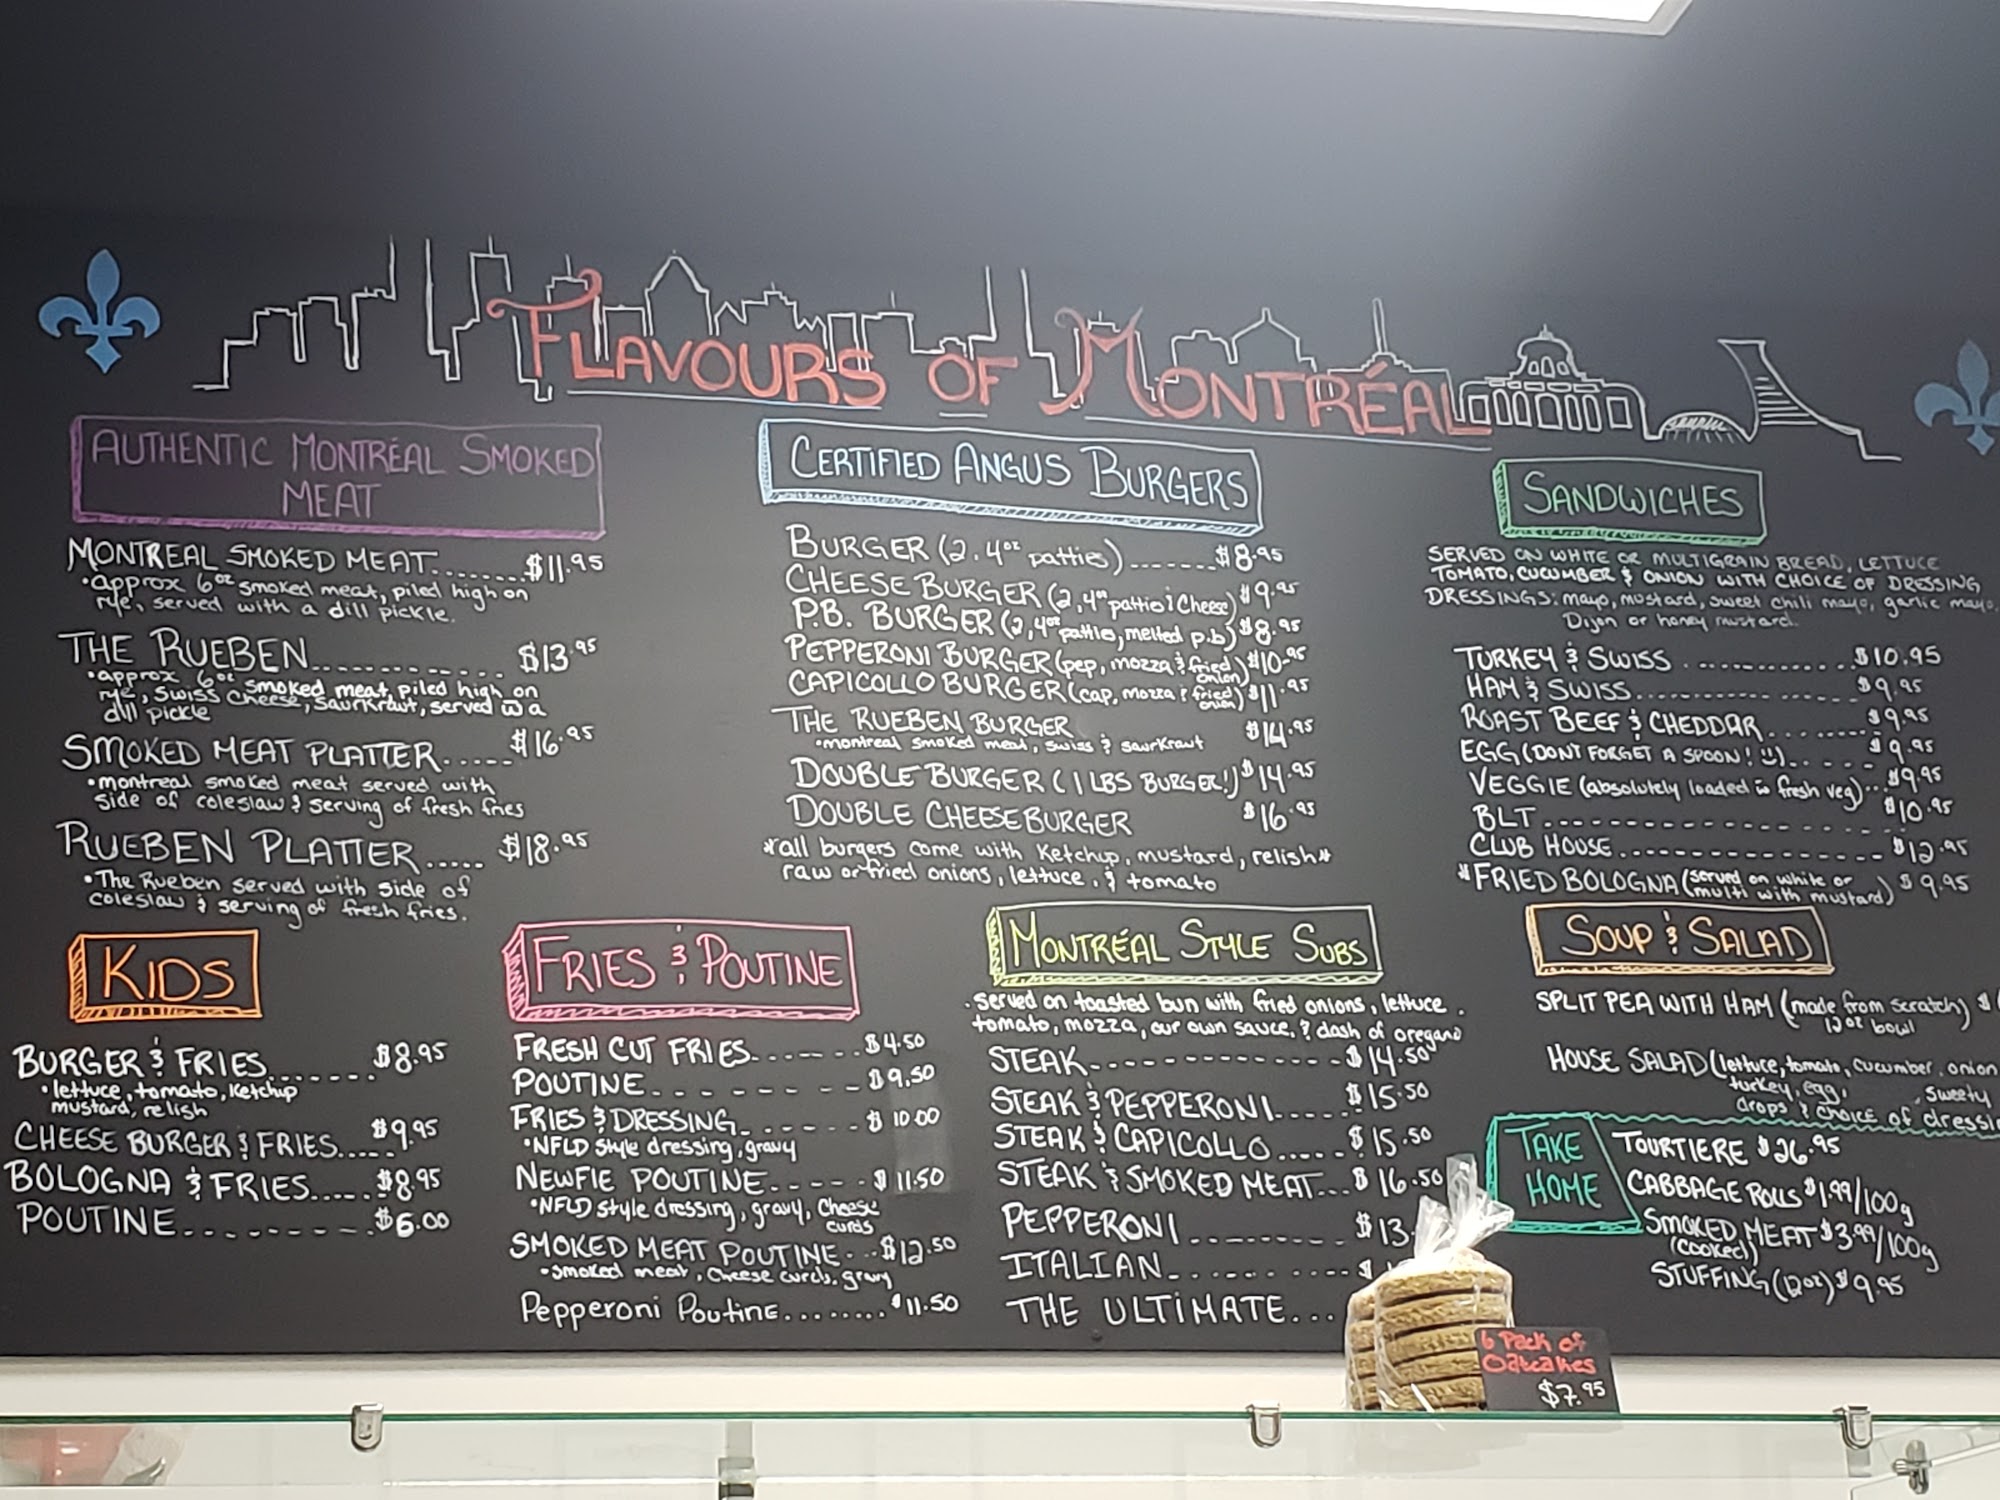 FLAVOURS OF MONTRÉAL
AUTHENTIC MONTRÉAL SMOKED
MEAT
MONTREAL SMOKED MEAT........$11.95
•approx 6oz smoked meat, piled high on
rye, served with a dill pickle.
THE RUEBEN............ $13.95
•approx 6oz smoked meat, piled high on
rye, swiss cheese, saurkraut, served w a
dill pickle
SMOKED MEAT PLATTER.....$16.95
•montreal smoked meat served with
side of coleslaw & serving of fresh fries
RUEBEN PLATTER..... $18.95
•The Rueben served with side of
coleslaw & serving of fresh fries.
CERTIFIED ANGUS BURGERS
BURGER (2, 4oz patties).......$8.95
CHEESE BURGER (2, 4oz pattie & Cheese) $9.95
P.B. BURGER (2, 4oz patties, melted p.b) $8.95
PEPPERONI BURGER (pep, mozza & fried onion) $10.95
CAPICOLLO BURGER (cap, mozza & fried onion) $11.95
THE RUEBEN BURGER $14.95
•montreal smoked meat, swiss & saurkraut
DOUBLE BURGER (1 LBS BURGER!) $14.95
DOUBLE CHEESEBURGER $16.95
*all burgers come with ketchup, mustard, relish*
raw or fried onions, lettuce, & tomato
SANDWICHES
SERVED ON WHITE OR MULTIGRAIN BREAD, LETTUCE
TOMATO, CUCUMBER & ONION WITH CHOICE OF DRESSING
DRESSINGS: mayo, mustard, sweet chili mayo, garlic mayo,
Dijon or honey mustard.
TURKEY & SWISS ..............$10.95
HAM & SWISS.................$9.95
ROAST BEEF & CHEDDAR........$9.95
EGG (DONT FORGET A SPOON! :)).....$9.95
VEGGIE (absolutely loaded w fresh veg)...$9.95
BLT.......................$10.95
CLUB HOUSE...................$12.95
*FRIED BOLOGNA (served on white or $9.95
multi with mustard)
KIDS
BURGER & FRIES....... $8.95
•lettuce, tomato, ketchup
mustard, relish
CHEESE BURGER & FRIES..... $9.95
BOLOGNA & FRIES.....$8.95
POUTINE.........$6.00
FRIES & POUTINE
FRESH CUT FRIES.........$4.50
POUTINE.........$9.50
FRIES & DRESSING.......$10.00
•NFLD style dressing, gravy
NEWFIE POUTINE......$11.50
•NFLD style dressing, gravy, cheese
curds
SMOKED MEAT POUTINE...$12.50
•smoked meat, cheese curds, gravy
Pepperoni Poutine.........$11.50
MONTRÉAL STYLE SUBS
•served on toasted bun with fried onions, lettuce
tomato, mozza, our own sauce, & dash of oregano
STEAK..............$14.50
STEAK & PEPPERONI.....$15.50
STEAK & CAPICOLLO.....$15.50
STEAK & SMOKED MEAT...$16.50
PEPPERONI.........$13.
ITALIAN..........$
THE ULTIMATE...
SOUP & SALAD
SPLIT PEA WITH HAM (made from scratch) $
12oz bowl
HOUSE SALAD (lettuce, tomato, cucumber, onion
turkey, egg, , sweety
drops & choice of
TAKE
HOME
TOURTIERE $26.95
CABBAGE ROLLS $1.99/100g
SMOKED MEAT $3.99/100g
(COOKED)
STUFFING (12oz) $9.95
6 Pack of
Oatcakes
$7.95